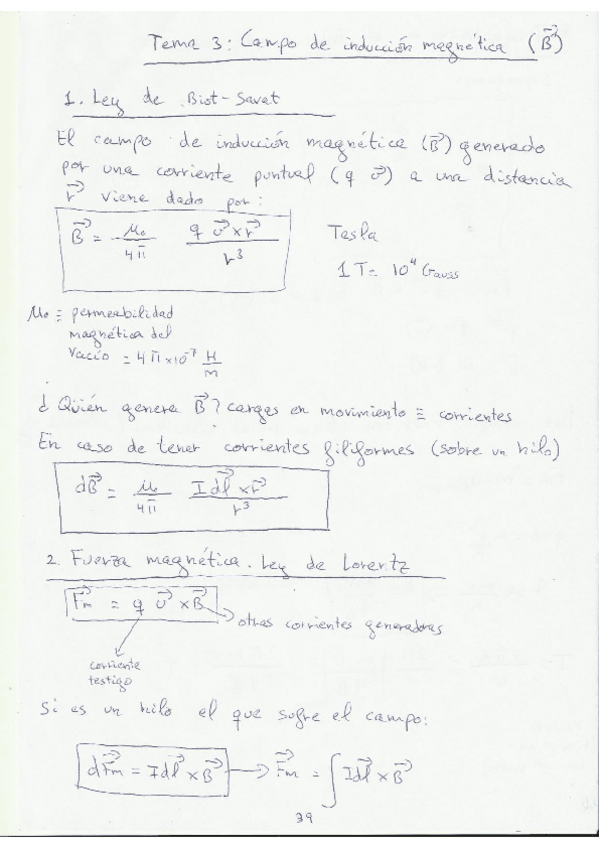 Tema 3: Campo de inducción magnética (B⃗)
1. Ley de Biot-Savat
El campo de inducción magnética (B⃗) generado
por una corriente puntual (q v⃗) a una distancia
r⃗ viene dado por:
B⃗ = μ₀/4π q v⃗ x r⃗ / r³
Tesla
1 T = 10⁴ Gauss
μ₀ ≡ permeabilidad
magnética del
vacío = 4π x 10⁻⁷ H/m
¿Quién genera B⃗? cargas en movimiento ≡ corrientes
En caso de tener corrientes filiformes (sobre un hilo)
dB⃗ = μ₀/4π I dl⃗ x r⃗ / r³
2. Fuerza magnética. Ley de Lorentz
F⃗m = q v⃗ x B⃗ → otras corrientes generadoras
corriente
testigo
Si es un hilo el que sufre el campo:
dF⃗m = I dl⃗ x B⃗ → F⃗m = ∫ I dl⃗ x B⃗
39